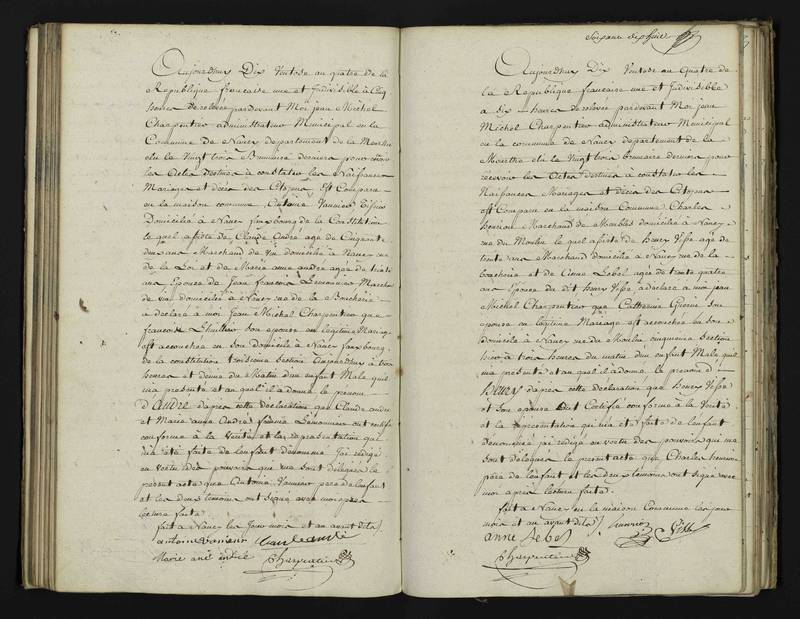 Aujourdhui Dix Ventose an quatre de la
Republique francaise une et Indivisible à Cinq
heures de relevée pardevant Moi jean Michel
Charpentier administrateur Municipal en la
Commune de Nancy departement de la Meurthe
elu le Vingt trois Brumaire dernier pour
les Actes destinés à constater les Naissances
Mariages et décès des Citoyens Est Comparu
en la maison commune, Antoine Vannier
Domicilié à Nancy fauxbourg de la Constitution
le quel assisté de Claude André agé de Cinquante
deux ans Marchand de Vin domicilié à Nancy rue
de la Loi et de Marie anne andré agée de trente
ans Epouse de Jean francois Lemonnier Marchand
de vin domiciliée à Nancy rue de la Boucherie
a déclaré à moi Jean Michel Charpentier que
francoise Lhuillier Son epouse en légitime Mariage
est accouchée en son domicile à Nancy fauxbourg
de la constitution troisieme Section aujourdhui à trois
heures et demie du Matin d'un enfant Male quil
m'a presenté et au quel il a donné le prenom
d'André d'après cette déclaration que Claude andré
et Marie anne André femme Lemonnier ont certifié
conforme à la Verité et la representation qui
m'a été faite de l'enfant dénommé J'ai rédigé
en vertu des pouvoirs qui me sont délégués le
présent acte que Antoine Vannier père de l'enfant
et les deux temoins ont signé avec moi après
lecture faite
fait à Nancy les Jour mois et an avant dits
antoine Vannier Claude andré
Marie ane andré Charpentier
Soixante dix huit
Aujourdhui Dix Ventose an Quatre de
la Republique francaise une et Indivisible
à Six heures de relevée pardevant Moi jean
Michel Charpentier administrateur Municipal
en la commune de Nancy departement de la
Meurthe elu le Vingt trois brumaire dernier pour
recevoir les Actes destinés à constater les
Naissances Mariages et décès des Citoyens
est Comparu en la maison Commune Charles
Marchand de Meubles domicilié à Nancy
rue du Moulin le quel assisté de henry agé de
trente ans Marchand domicilié à Nancy rue de la
boucherie et de agée de trente quatre
ans Epouse du dit henry a déclaré à moi jean
Michel Charpentier que Catherine Son
epouse en légitime Mariage est accouchée en Son
domicile à Nancy rue du Moulin cinquieme Section
à trois heures du matin d'un enfant Male quil
m'a presenté et au quel il a donné le prenom d
Henry d'après cette declaration que henry
et Son epouse ont Certifié conforme à la Verité
et la representation qui m'a été faite de l'enfant
dénommé j'ai rédigé en vertu des pouvoirs qui me
sont délégués le present acte que Charles
père de l'enfant et les deux temoins ont signé avec
moi après lecture faite
fait à Nancy en la maison Commune les jour
mois et an avant dits
anne
Charpentier